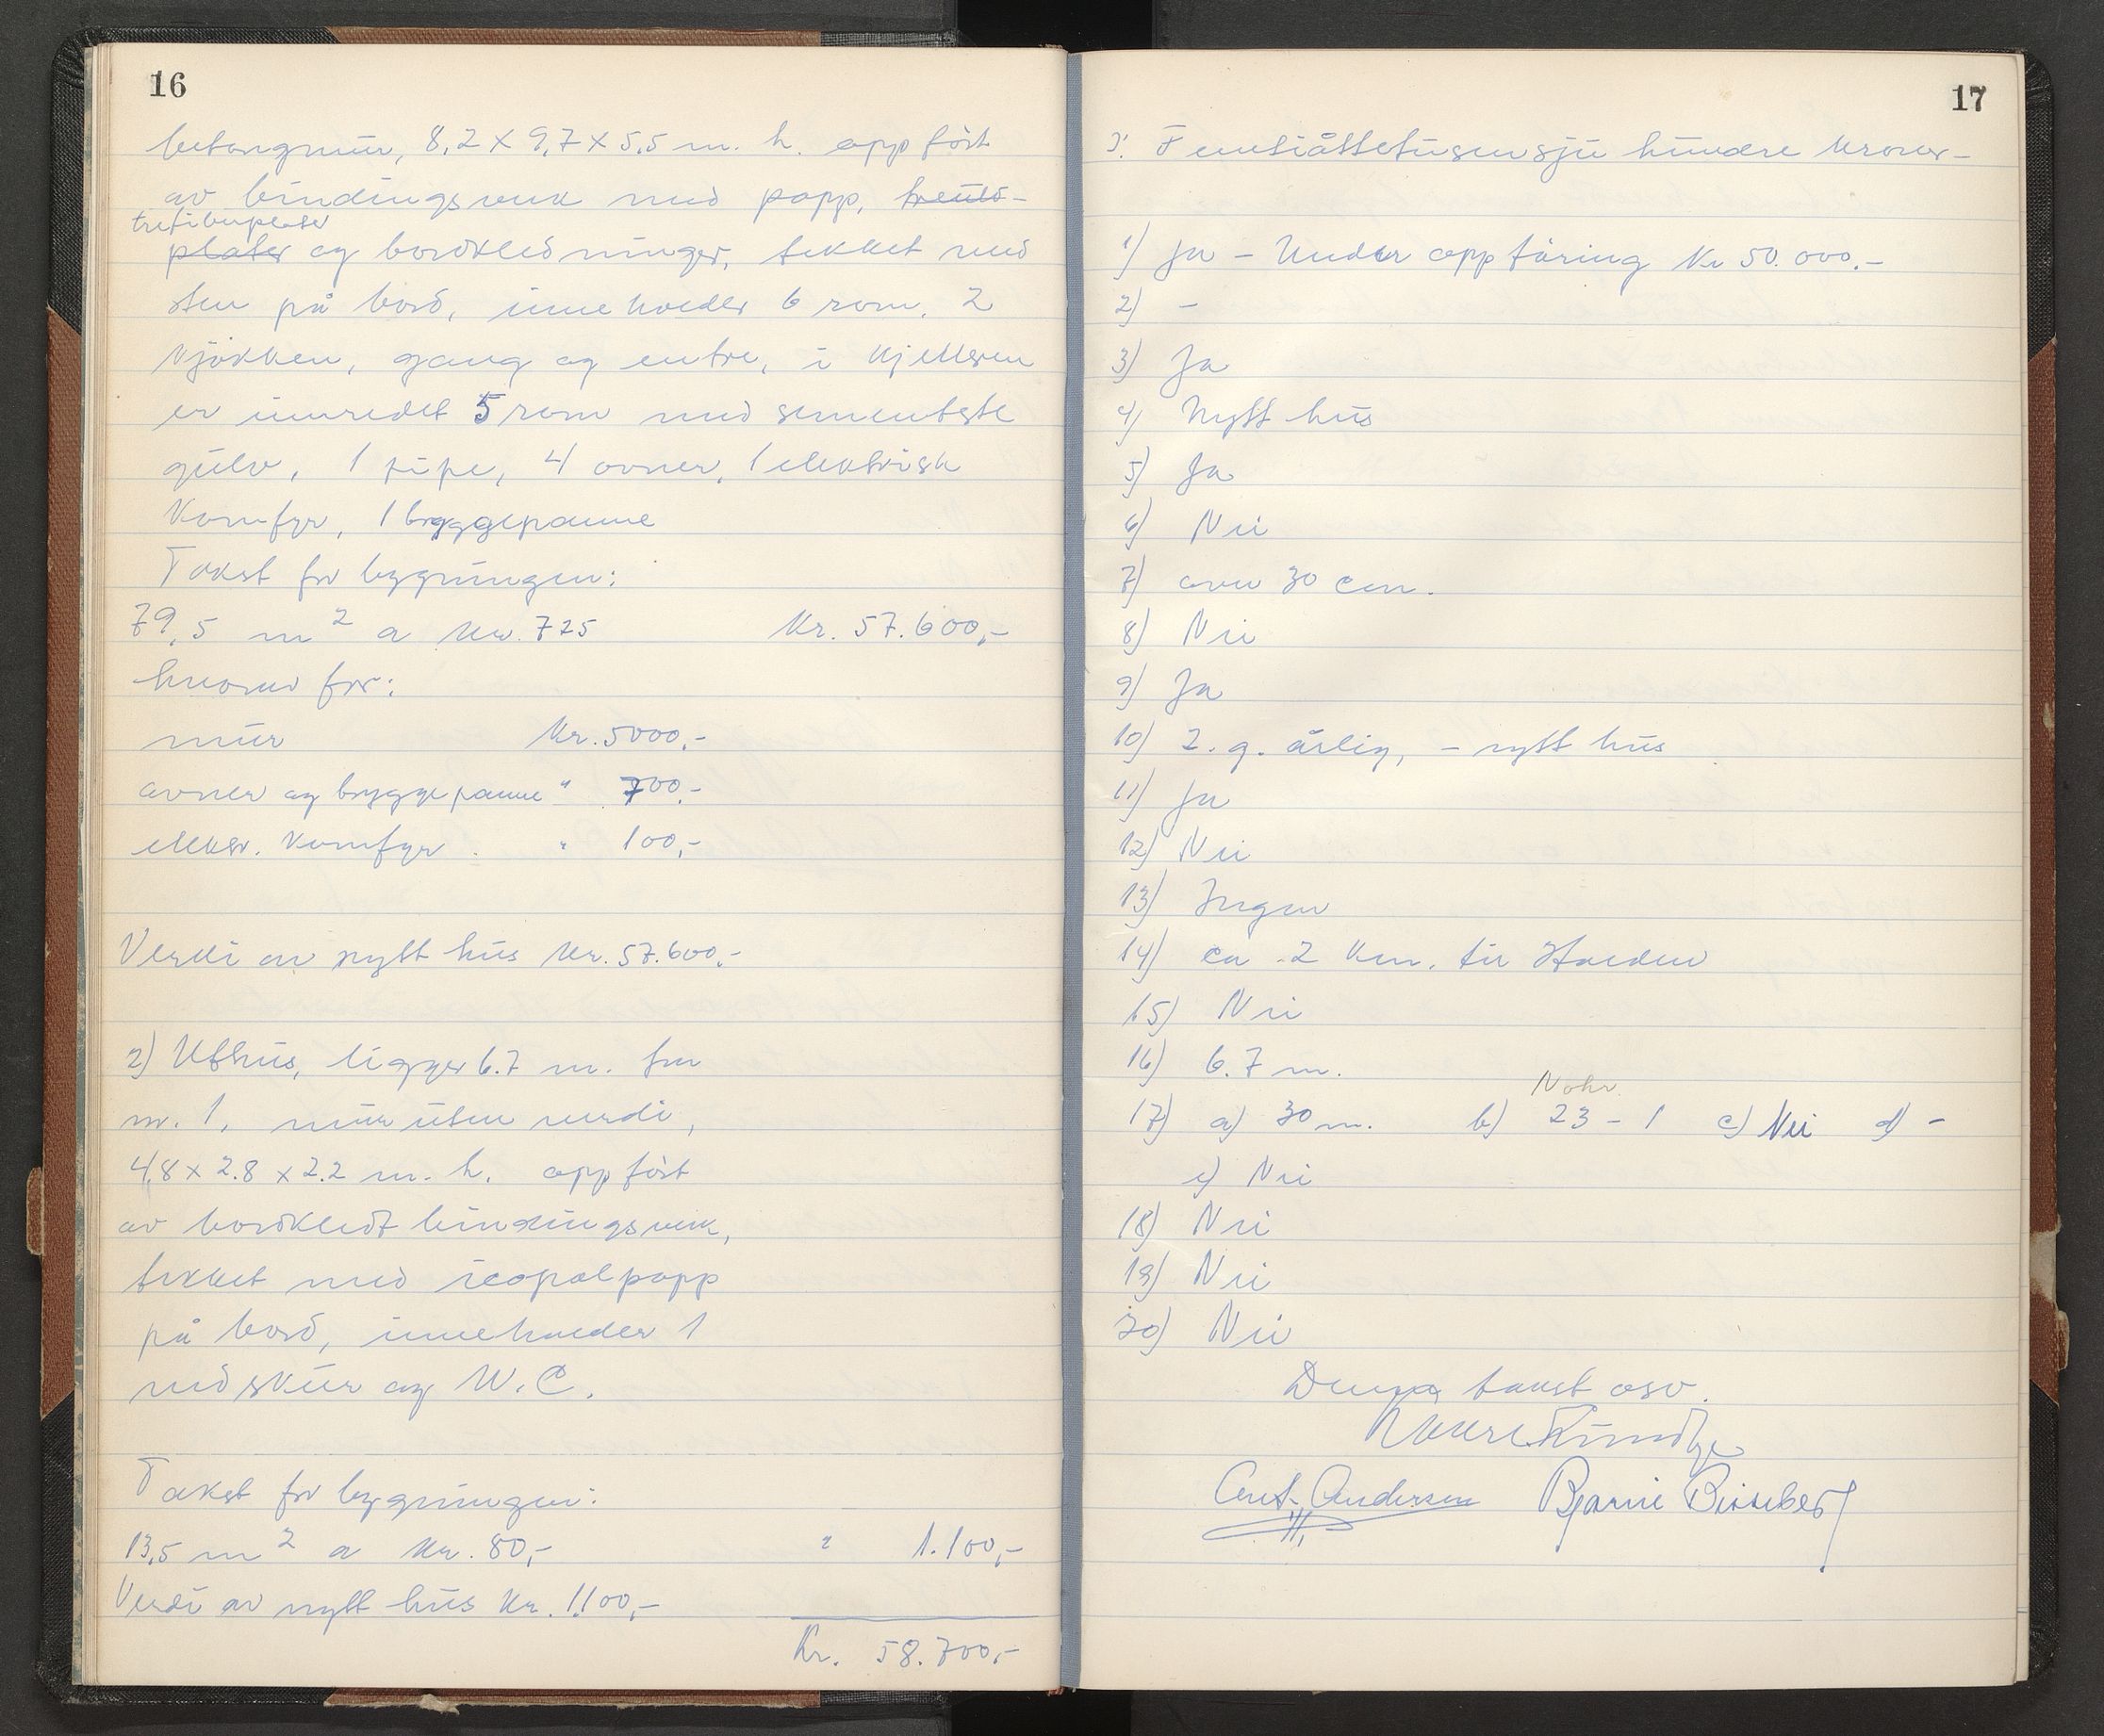 16
betongmur, 8,2 x 9,7 x 5,5 m. h. oppført
av bindingsverk med papp,
trefiberplater
plater og bordkledninger, tekket med
sten på bord, inneholder 6 rom, 2
kjøkken, gang og entre, i kjelleren
er innredet 5 rom med sementstøpt
gulv, 1 pipe, 4 ovner, 1 elektrisk
komfyr, 1 bryggepanne
Takst for bygningen:
79,5 m² a kr. 725 Kr. 57.600,-
hvorav for:
mur Kr. 5000,-
ovner og bryggepanne " 700,-
elektr. komfyr. " 100,-
Verdi av nytt hus kr. 57.600,-
2) Uthus, ligger 6.7 m. fra
nr. 1, mur uten verdi,
4,8 x 2.8 x 2.2 m. h. oppført
av bordkledt bindingsverk,
tekket med icopalpapp
på bord, inneholder 1
vedskur og W.C.
Takst for bygningen:
13,5 m² a kr. 80,- " 1.100,-
Verdi av nytt hus kr. 1100,-
Kr. 58.700,-
17
Femtiåttetusensju hundre kroner-
1) Ja - Under oppføring kr 50.000.-
2) -
3) Ja
4) Nytt hus
5) Ja
6) Nei
7) over 30 cm.
8) Nei
9) Ja
10) 2. g. årlig, - nytt hus
11) Ja
12) Nei
13) Ingen
14) ca. 2 km. til Halden
15) Nei
16) 6.7 m.
Nohr.
17) a) 30 m. b) 23 - 1 c) Nei d) -
e) Nei
18) Nei
19) Nei
20) Nei
Denne takst osv.
Ant. Andersen Bjarne